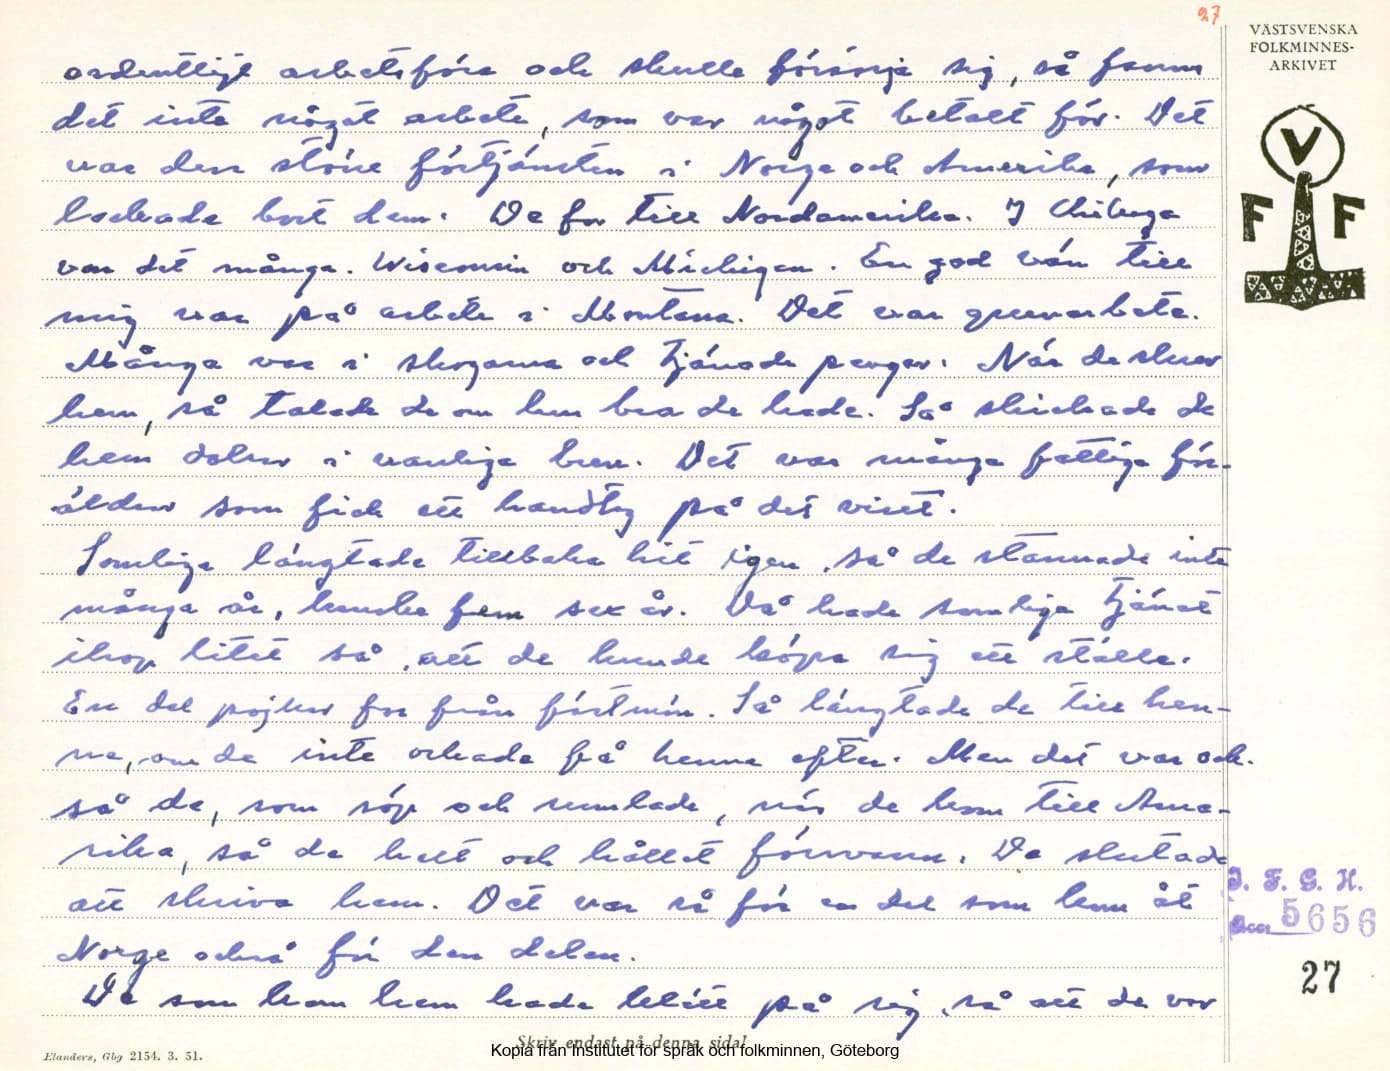 27
VÄSTSVENSKA
FOLKMINNES-
ARKIVET
V
F F
ordentligt arbetsföra och skulle försörja sig, så fanns
det inte något arbete, som var något betalt för. Det
var den större förtjänsten i Norge och Amerika, som
lockade bort dem. De for till Nordamerika. I Chikago
var det många. Wisconsin och Michigan. En god vän till
mig var på arbete i Montana. Det var gruvarbete.
Många var i skogarna och tjänade pengar. När de skrev
hem, så talade de om hur bra de hade. Så skickade de
hem dolrar i vanliga brev. Det var många fattiga för-
äldrar som fick ett handtag på det viset.
Somliga längtade tillbaka hit igen, så de stannade inte
många år, kanske fem sex år. Då hade somliga tjänat
ihop litet så, att de kunde köpa sig ett ställe.
En del pojkar for från fästmön. Så längtade de till hen-
ne, om de inte orkade få henne efter. Men det var ock-
så de, som söp och rumlade, när de kom till Ame-
rika, så de helt och hållet försvann. De slutade
att skriva hem. Det var så för en del som kom åt
Norge också för den delen.
De som kom hem hade klätt på sig, så att de var
I. F. G. H.
Acc. 5656
27
Skriv endast på denna sida!
Kopia från Institutet för språk och folkminnen, Göteborg
Elanders, Gbg 2154. 3. 51.